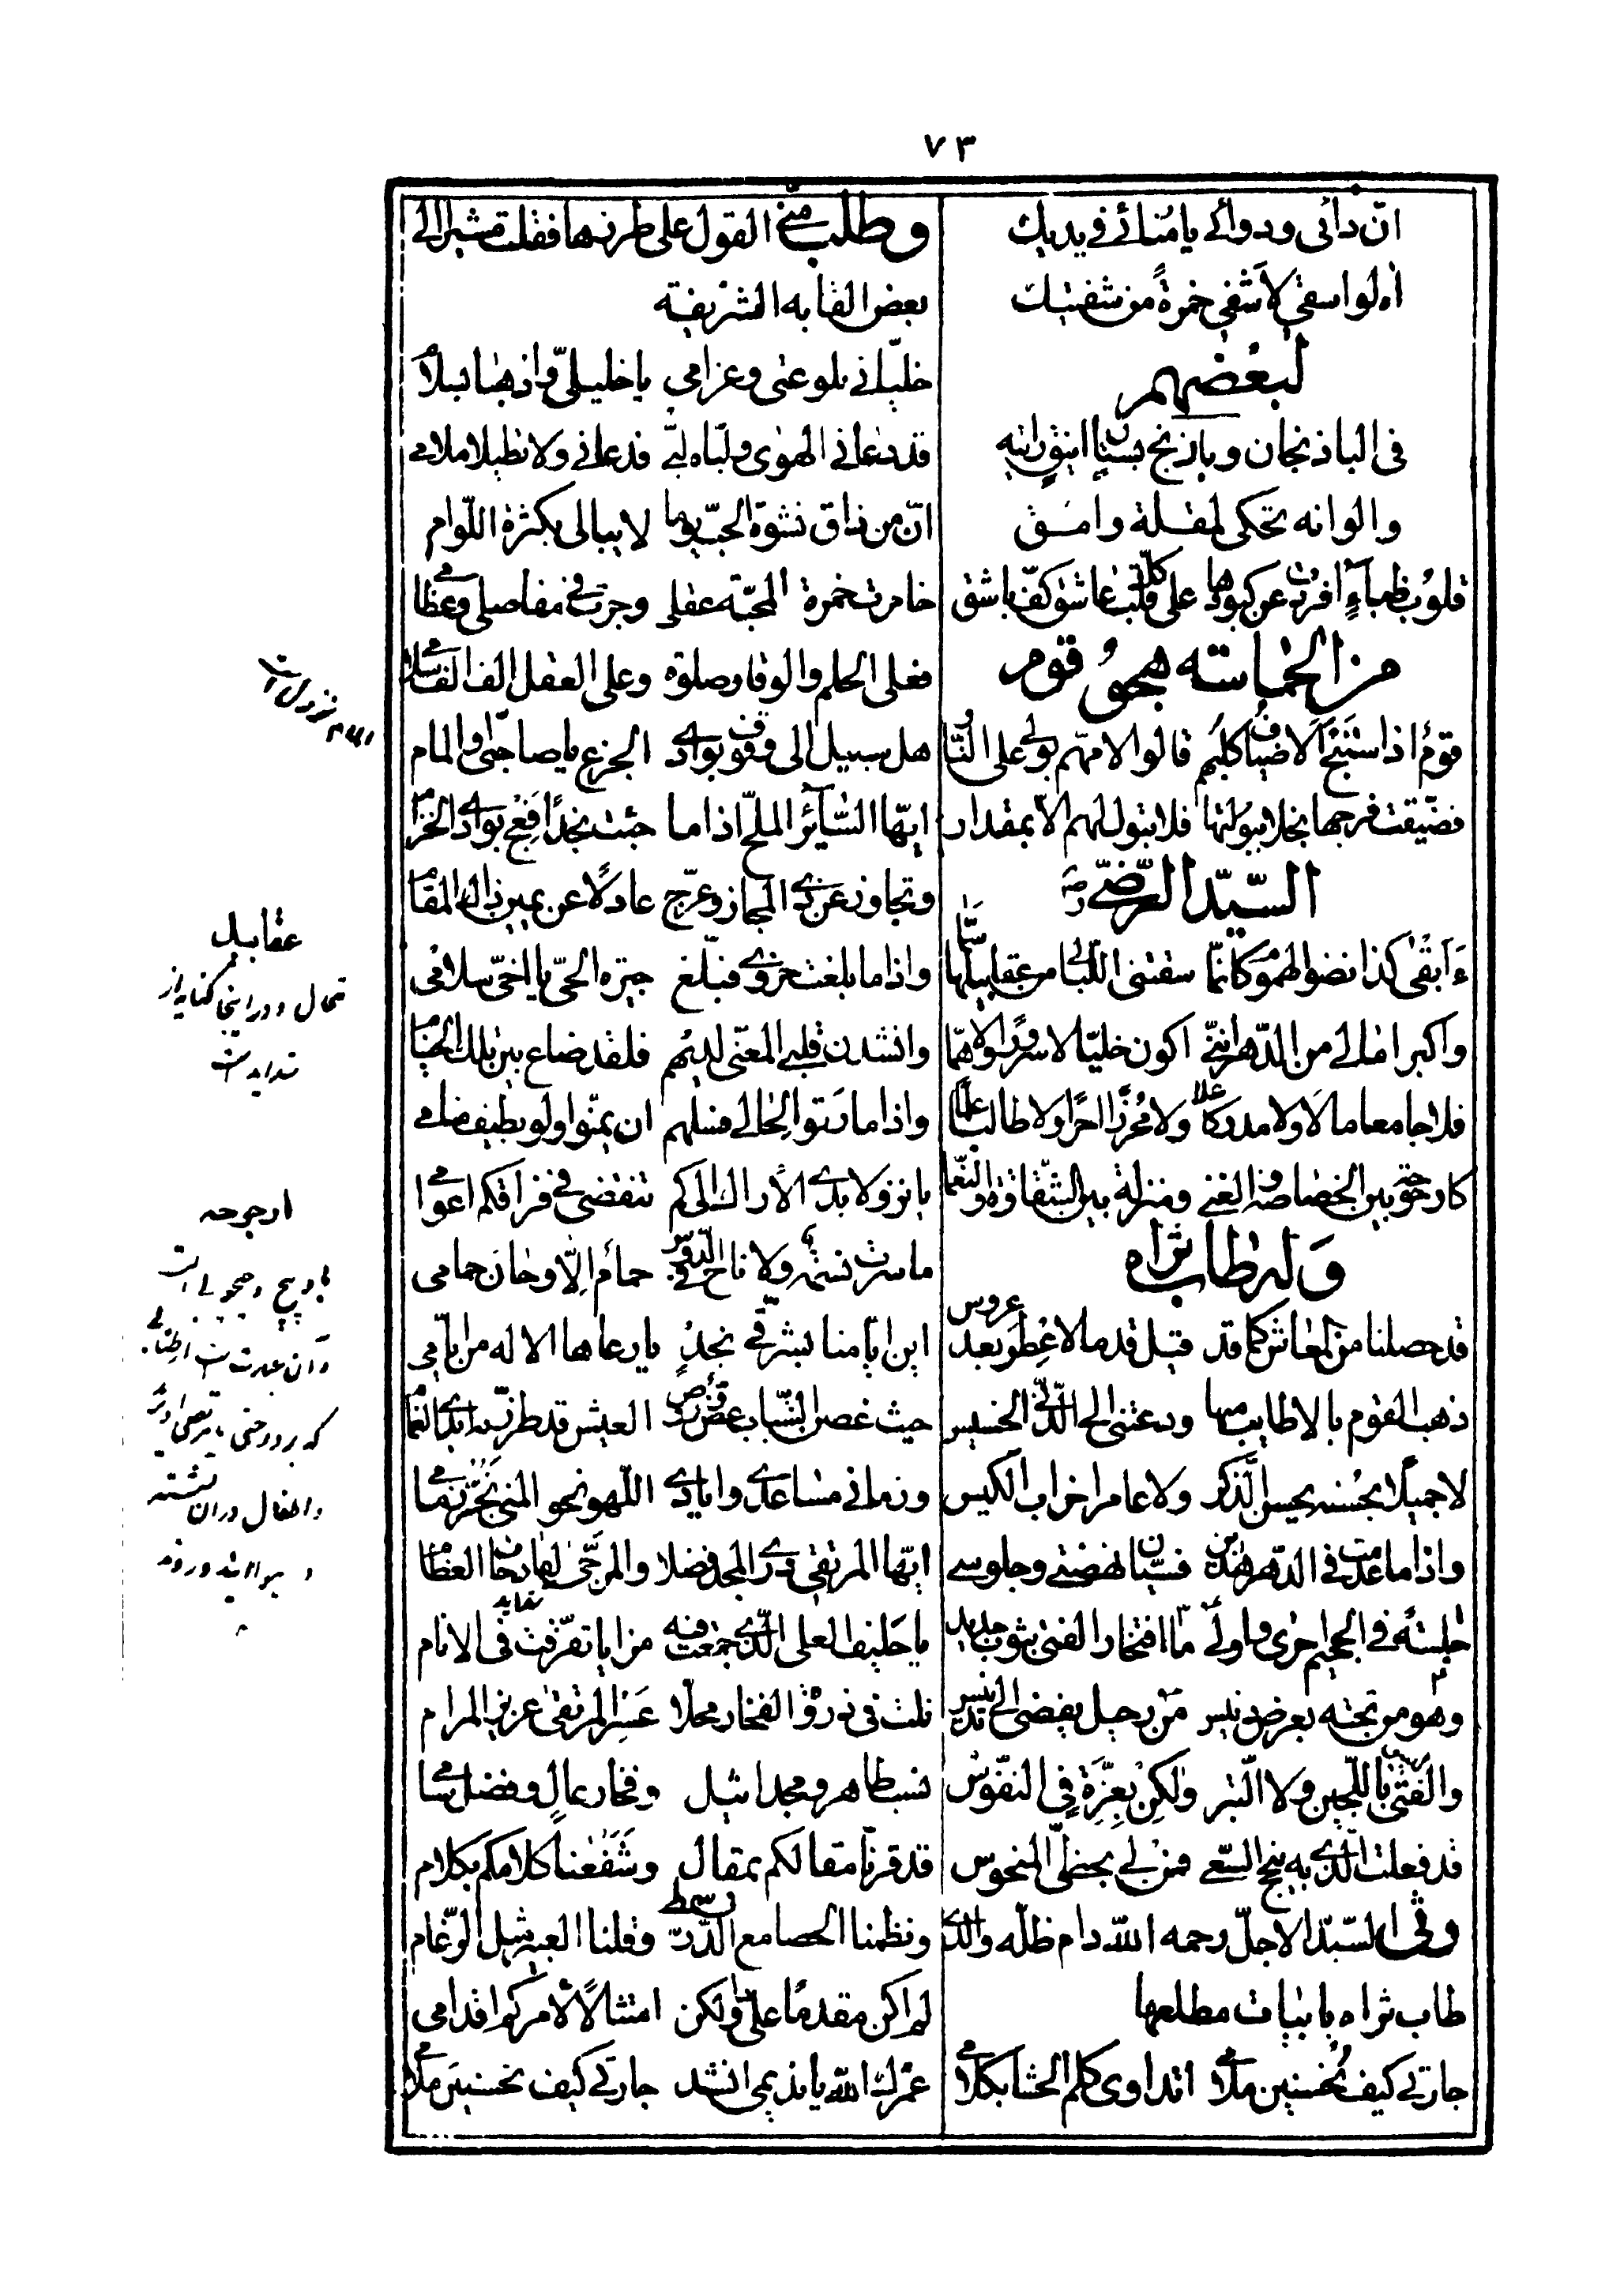 ٧٣
انّ دائى ودوائے يا مُنائے فى يديك
اه لو اسقى لاشفى خمرةً من شفتيك
لبعضهم
فى الباذنجان وباذنج بستان انيق رايته
والوانه تحكى لمقلة وامـق
قلوب ظباءٍ افردت عن كبودها على كلّ قلب عاشق كفّ باشق
من الحماسته هجو قوم
قومٌ اذا استنبح الاضياف كلبهم قالوا لامّهم بولى على النّار
فضيّقت فرجها بخلا ببولتها فلا تبول لهم الا بمقدار
السّيّد الرّضى ره
ءَ اَبقى كذا نضو الهموم كانّما سقتنى اللّيالى من عقابيلها سمّا
واكبر امالى من الدّهر انّنى اكون خليّا لا سرورا ولا همّا
فلا جامعا مالا ولا مدركا علا ولا محرزا اجرا ولا طالبا علما
كارجوحة بين الخصاصة والغنى ومنزلة بين الشّقاوة والنّعما
وَله طاب ثراه
قد حصلنا من المعاش كما قد قيل قدما لا عِطر بعد عروس
ذهب القوم بالاطايب منها ودعتنى الى الدّنىّ الخسيس
لا جميلا بحسنه يحسن الذّكر ولا عامرا خراب الكيس
واذا ما عدمت فى الدّهر هذين فسيّان نهضتى وجلوسى
جلسته فى الجحيم احرى واولى ما افتخار الفتى بثوب جديد
وهو من تحته بعرض دنيس من رحيل يفضى الى تدنيس
والفتى ليس باللّجين ولا التّبر ولكن بعزّة فى النفوس
قد فعلت الّذى به ينجح السّعى فمن لى بحظّى المنحوس
وقى السّيّد الاجلّ رحمه اللّه دام ظلّه والدى
طاب ثراه بابيات مطلعها
جارتى كيف تحسنين ملامى اتداوى كلم الحشا بكلامى
وطلب منّى القول على طرزها فقلت مشيرا الى
بعض القابه الشريفة
خليّانى بلوعتى وغرامى يا خليلىّ واذهبا بسلام
قد دعانى الهوى ولبّاه لبّى فدعانى ولا تطيلا ملامى
انّ من ذاق نشوة الحبّ يوما لا يبالى بكثرة اللّوام
خامرت خمرة المحبّة عقلى وجرت فى مفاصلى وعظامى
فعلى الحلم والوقار صلوة وعلى العقل الف الف سلام
هل سبيل الى وقوف بوادى الجزع يا صاحبىّ والمام
ايّها السّائر الملحّ اذا ما جئت نجدًا فعُج بوادى الخزام
وتجاوز عن ذى المجاز وعرّج عادلًا عن يمين ذاك المقام
واذا ما بلغت حزوى فبلّغ جيرة الحىّ يا اخىّ سلامى
وانشدن قلبى المعنّى لديهم فلقد ضاع بين تلك الخيام
واذا ما رثوا لحالى فسلهم ان يمنّوا ولو بطيف منامى
يا نزولا بذى الأراك الى كم تنقضى فى فراقكم اعوامى
ما سرت نسمة ولا ناح فى الدّوح حمام الّا وحان حمامى
اين ايّامنا بشرقى نجدٍ يا رعاها الاله من ايّام
حيث غصن الشّباب غضّ وروض العيش قد طرّزته ايدى الغمام
وزمانى مساعدى وايادى اللّهو نحو المنى تجرّ زمامى
ايّها المرتقى ذرى المجد فضلا والمرجّى لفادحات العظام
يا حليف العلى الّذى جمعت فيه مزايا تفرّقت فى الانام
نلت فى ذروة الفخار محلّا عسر المرتقى عزيز المرام
نسب طاهر ومجد اثيل وفخار عال وفضل سامى
قد قرنّا مقالكم بمقال وشفعنا كلامكم بكلام
ونظمنا الحصا مع الدّرّ فى سمط وقلنا العبير مثل الرّغام
لم اكن مقدمًا على ذا ولكن امتثالًا لامركم اقدامى
عمرك اللّه يا نديمى انشد جارتى كيف تحسنين ملامى
عقابيل
ارجوحه